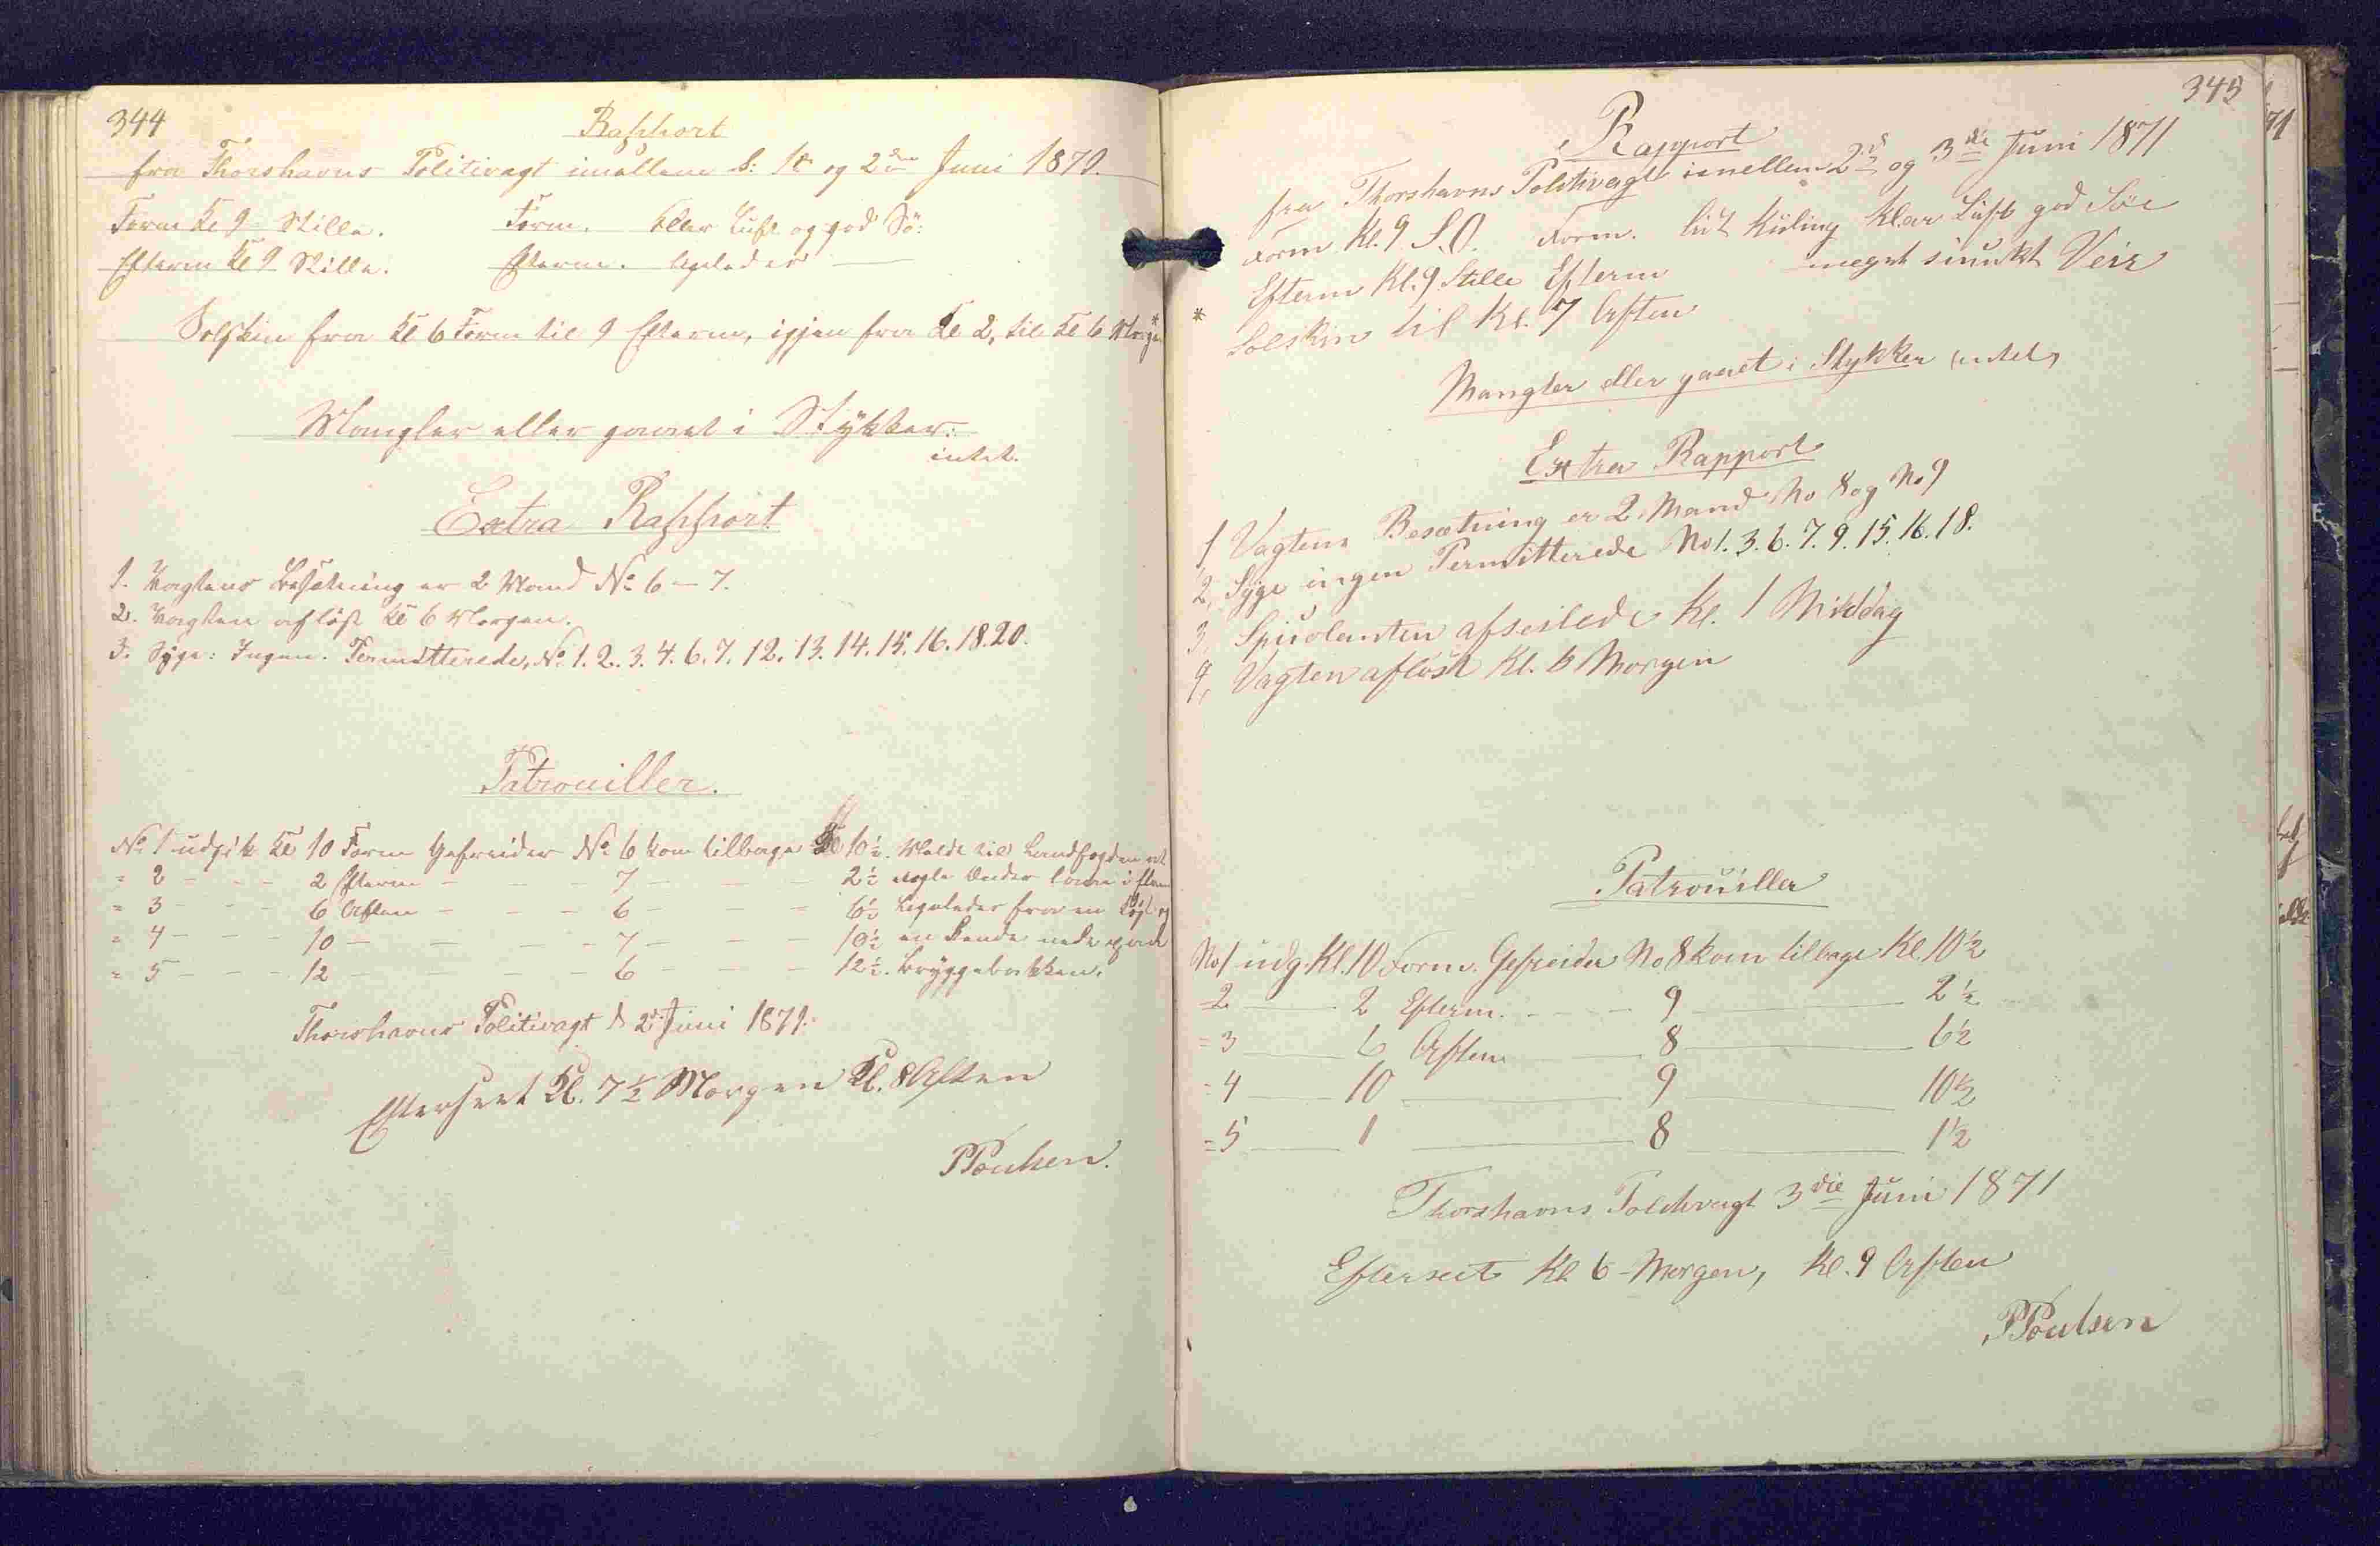 344
Rapport
fra Thorshavns Politivagt imellem d: 1ste og 2den Juni 1871.
Form Kl 9 Stille. Form. klar Luft og god Sö:
Efterm Kl 9 Stille. Efterm. ligeledes —
Solskin fra Kl 6 Form til 9 Efterm, igjen fra Kl 2, til Kl 6 Morgen
Mangler eller gaaet i Stÿkker:
intet.
Extra Rapport
1. Vagtens Besætning er 2 Mand No 6 – 7.
2. Vagten aflöst Kl 6 Morgen.
3. Syge: Ingen. Permitterede, No 1. 2. 3. 4. 6. 7. 12. 13. 14. 15. 16. 18. 20.
Patrouiller.
No 1 udgik Kl 10 Form Gefreider No 6 kom tilbage Kl 10½. Meldt til Landfogden at
= 2 - - - 2 Efterm - - - 7 - - - 2½ nogle Ender laae i
= 3 - - - 6 Aften - - - 6 - - - 6½ ligeledes fra en og
= 4 - - - 10 - - - 7 - - - 10½ en Rende nede ved
= 5 - - - 12 - - - 6 - - - 12½. Bryggebakken.
Thorshavns Politivagt d 2den Juni 1871.
Efterseet Kl. 7½ Morgen Kl. 8 Aften
PPoulsen.
345
Rapport
fra Thorshavns Politivagt imellem 2d og 3die Juni 1871
Form Kl. 9 S.O. Form. lidt Kuling Klar Luft god Söe
Efterm Kl. 9 Stille Efterm meget smukt Veir
* Solskin til Kl. 7 Aften
Mangler eller gaaet i Stykker intet,
Extra Rapport
1 Vagtens Besætning er 2 Mand No 8 og No 9
2, Syge ingen Permitterede No 1. 3. 6. 7. 9. 15. 16. 18.
3, afseilede Kl. 1 Middag
4, Vagten aflöst Kl. 6 Morgen
Patrouiller
No 1 udg. Kl. 10 Form. Gefreider No 8 kom tilbage Kl. 10½
=2 — 2 Efterm. - - - 9 — 2½
=3 — 6 Aften — 8 — 6½
=4 — 10 — 9 — 10½
=5 — 1 — 8 — 1½
Thorshavns Politivagt 3die Juni 1871
Efterseet Kl 6 Morgen, Kl. 9 Aften
PPoulsen